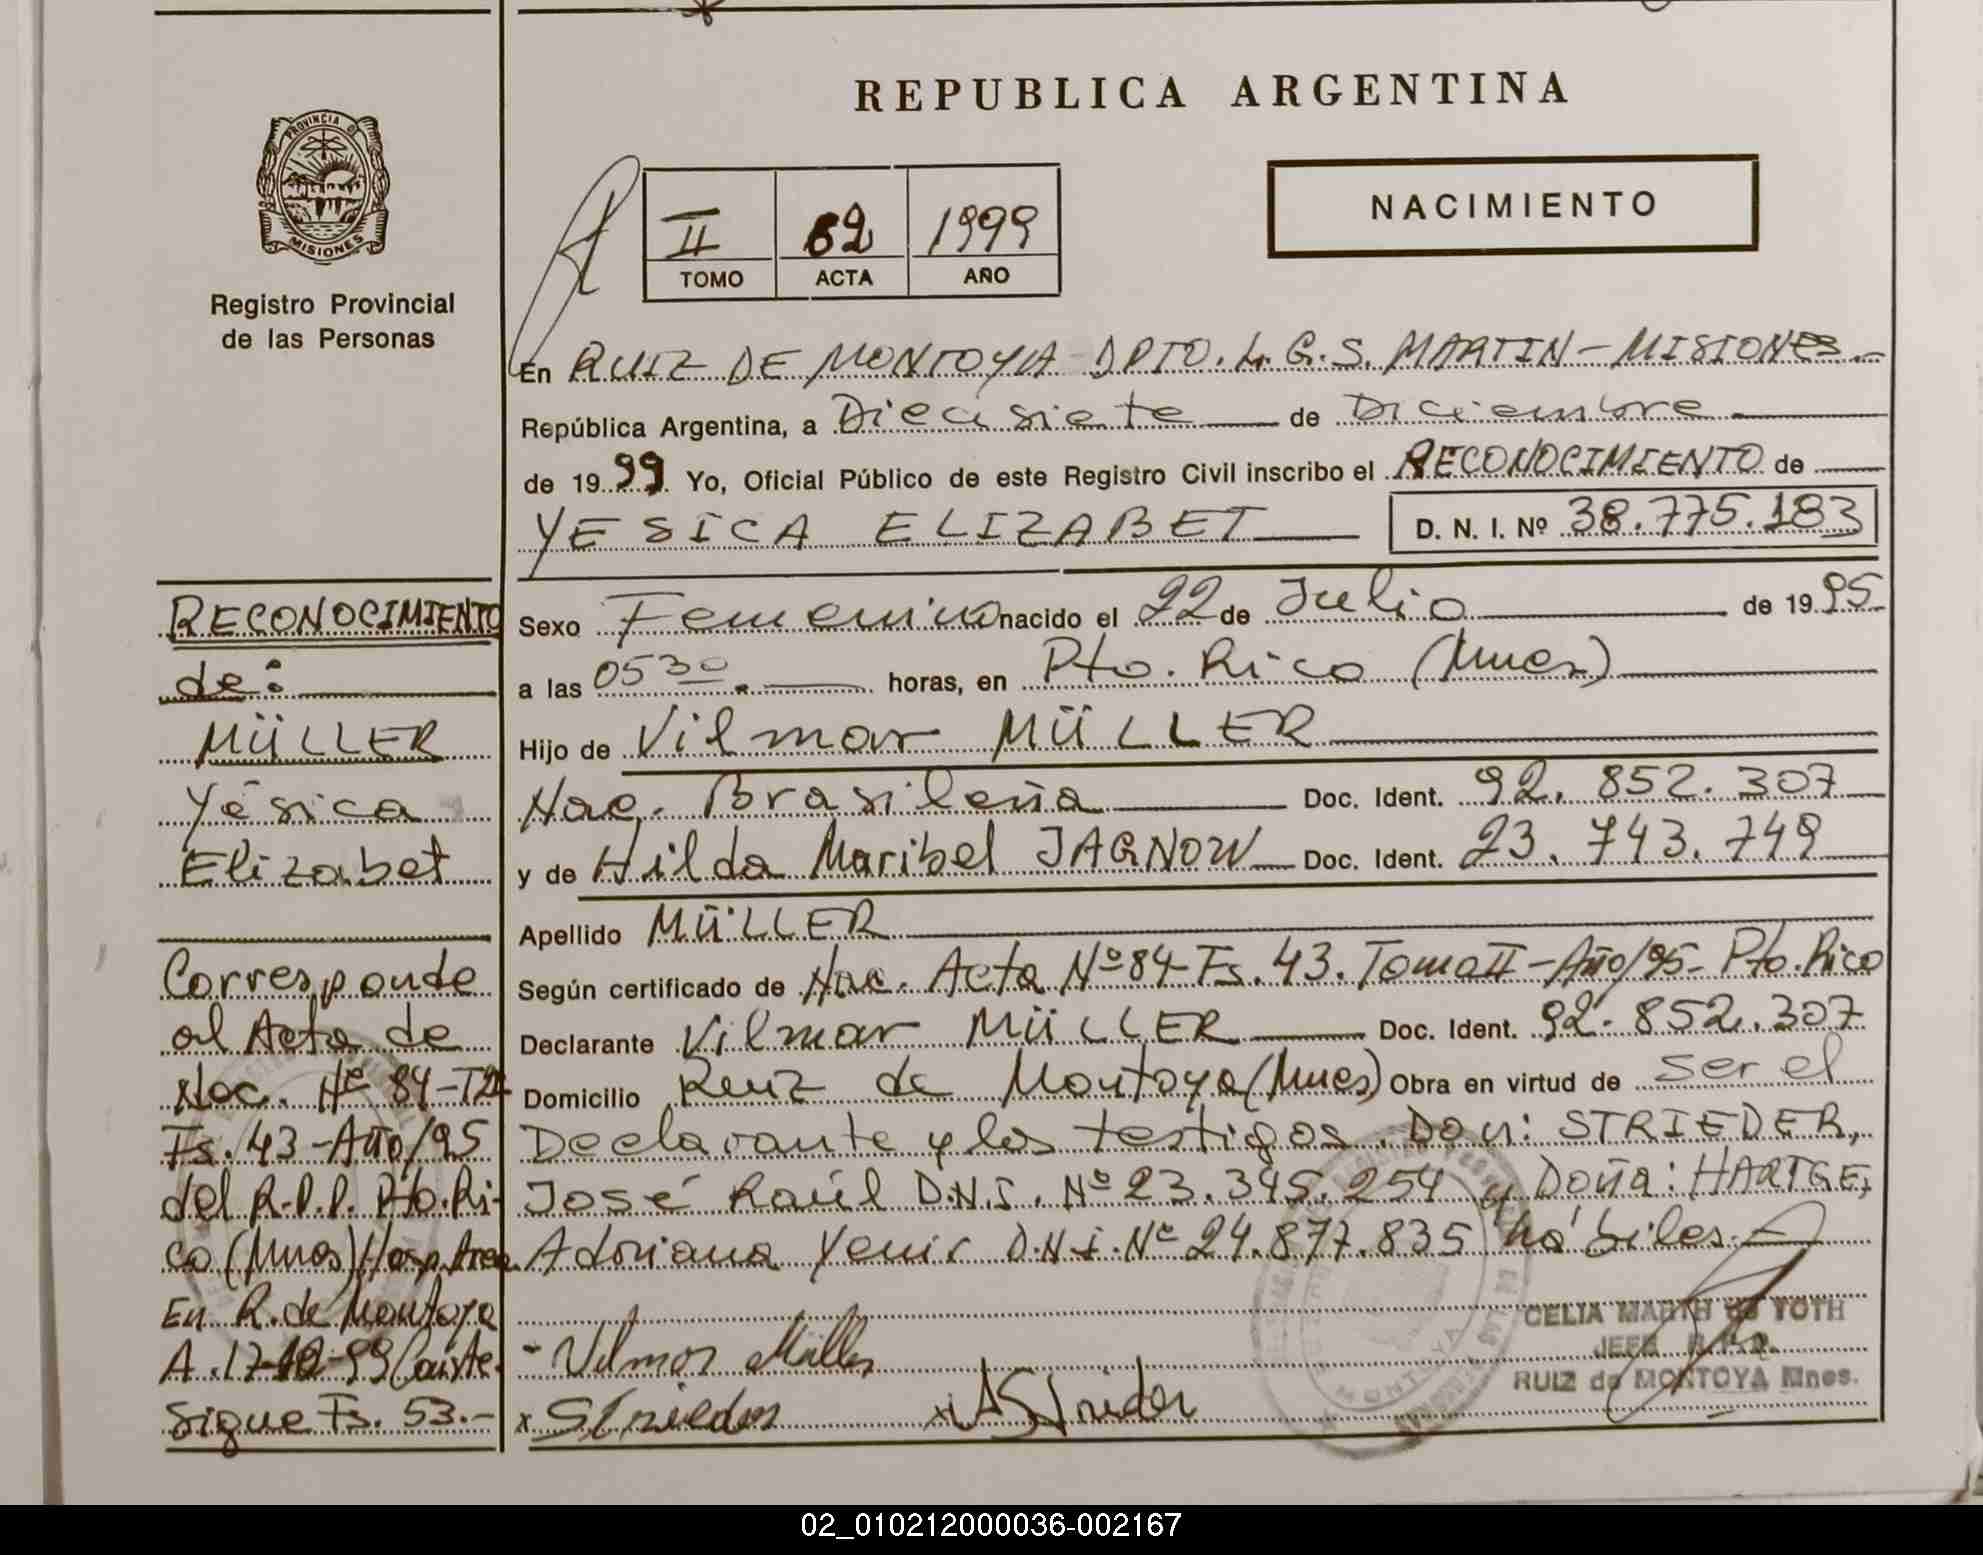 REPUBLICA ARGENTINA
PROVINCIA DE
MISIONES
Registro Provincial
de las Personas
II 62 1999
TOMO ACTA AÑO
NACIMIENTO
En RUIZ DE MONTOYA DPTO. L. G. S. MARTIN - MISIONES.-
República Argentina, a Diecisiete de Diciembre
de 1999 Yo, Oficial Público de este Registro Civil inscribo el RECONOCIMIENTO de
YESICA ELIZABET D. N. I. Nº 38.775.183
Sexo Femenino nacido el 22 de Julio de 1995
a las 0530 horas, en Pto. Rico (Mnes)
Hijo de Vilmar MÜLLER
Nac. Brasileña Doc. Ident. 92.852.307
y de Hilda Maribel JAGNOW Doc. Ident. 23.743.749
Apellido MÜLLER
Según certificado de Nac. Acta Nº 84-Fs. 43. Tomo II-Año/95- Pto. Rico
Declarante Vilmar MÜLLER Doc. Ident. 92.852.307
Domicilio Ruiz de Montoya (Mnes) Obra en virtud de ser el
Declarante y los testigos. Don: STRIEDER,
José Raúl D.N.I. Nº 23.345.254 y Doña: HARTGE,
Adriana Yenir D.N.I. Nº 24.877.835 hábiles.-
RECONOCIMIENTO
de:
MÜLLER
Yésica
Elizabet
Corresponde
al Acta de
Nac. Nº 84-T2
Fs. 43-Año/95
del R.P.P. Pto. Ri-
co (Mnes) Hosp. Area
En R. de Montoya
A. 17-12-99 Conste.
Sigue Fs. 53.-
- Vilmar Müller
x Strieder x
CELIA MARTH de TOTH
JEFE R.P.P.
RUIZ de MONTOYA Mnes.
MONTOYA
02_010212000036-002167